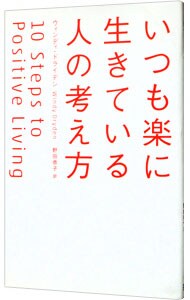 いつも楽に
生きている
人の考え方
ウィンディ・ドライデン Windy Dryden
野田恭子 訳
10 Steps to
Positive Living